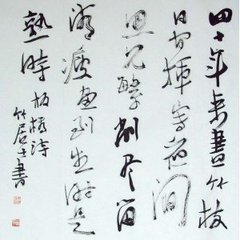 四十年来畫竹枝
日間揮寫夜間
思冗繁削盡留
清瘦畫到生時是
熟時 板橋詩
竹居士書